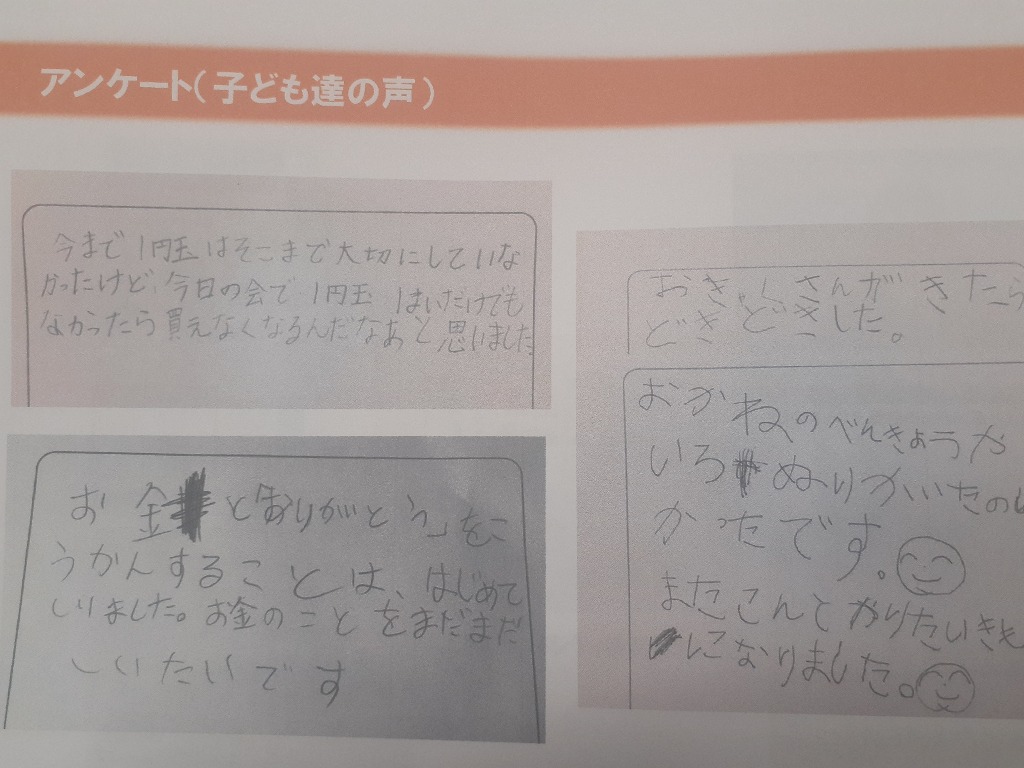 アンケート(子ども達の声)
今まで1円玉はそこまで大切にしていな
かったけど、今日の会で1円玉1まいだけでも
なかったら買えなくなるんだなあと思いました
お金と「ありがとう」をこ
うかんすることは、はじめて
しりました。お金のことをまだまだ
しいたいです
おきゃくさんがきたら
どきどきしました。
おかねのべんきょうや
いろぬりがいたのし
かったです。
またこんどやりたいきも
になりました。